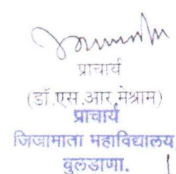 प्राचार्य
(डॉ.एस.आर.मेश्राम)
प्राचार्य
जिजामाता महाविद्यालय
बुलडाणा.